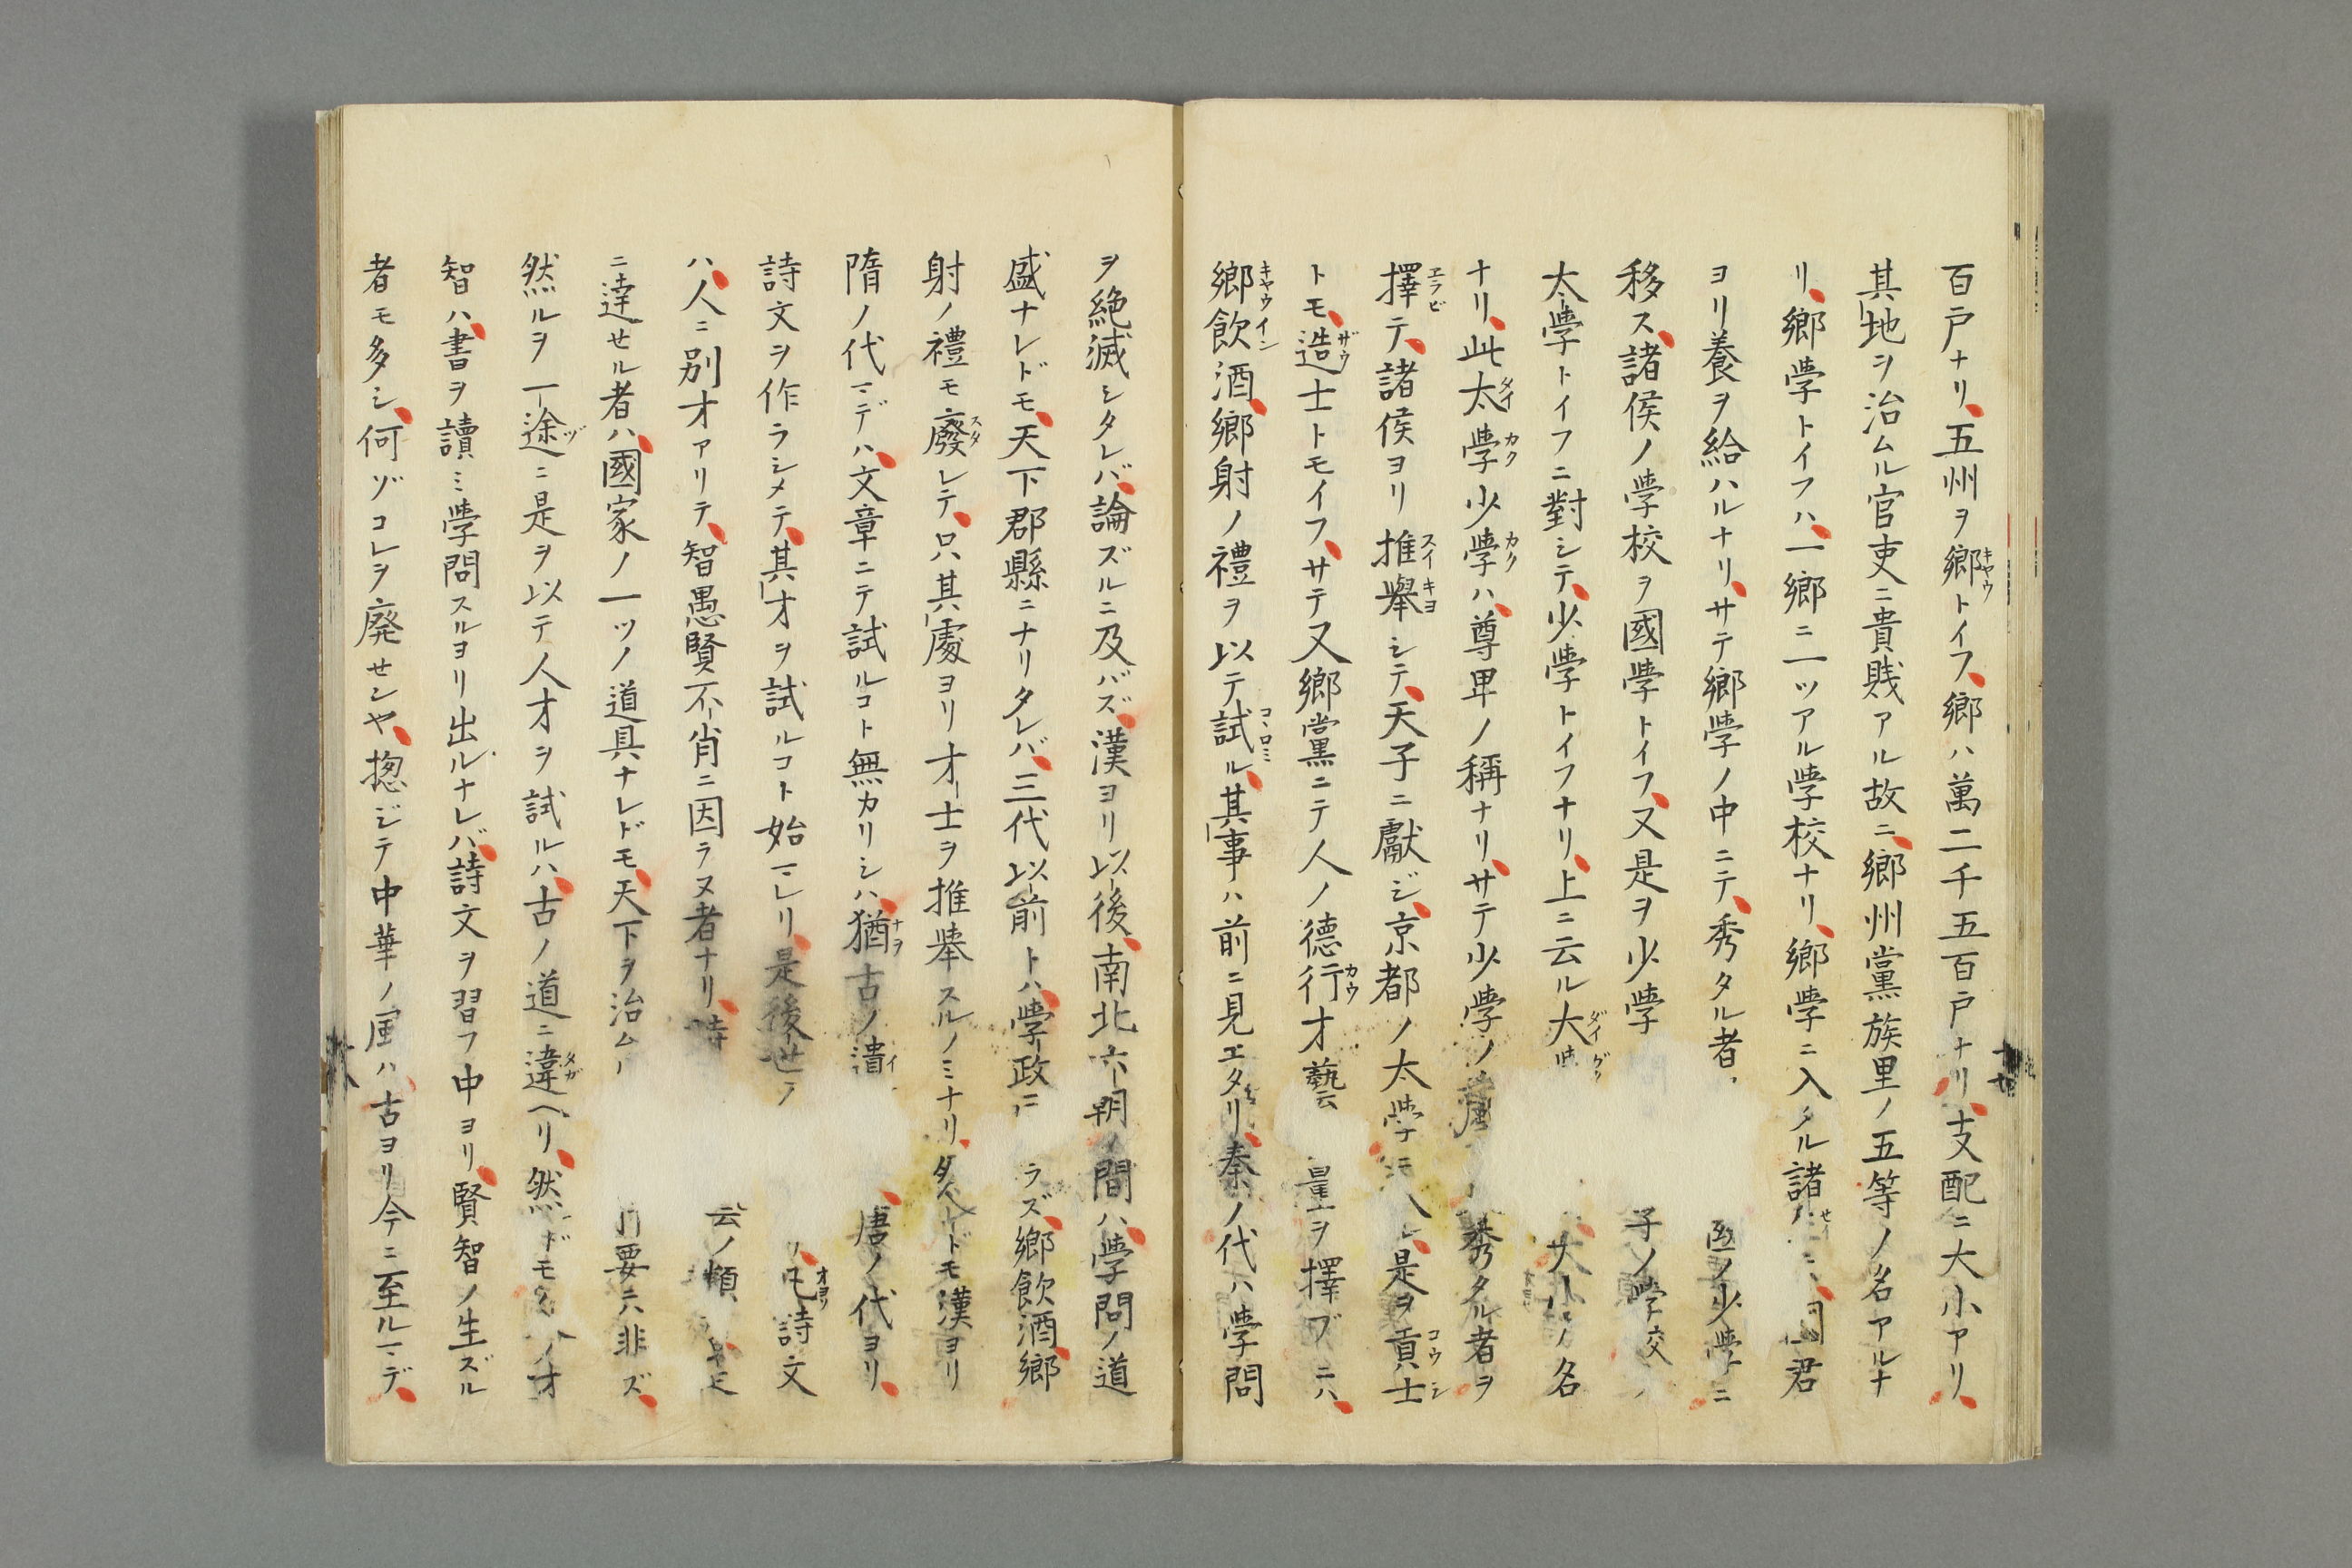 百戸ナリ、五州ヲ鄕トイフ、鄕ハ萬二千五百戸ナリ、支配ニ大小アリ、
其地ヲ治ムル官吏ニ貴賎アル故ニ、鄕州黨族里ノ五等ノ名アルナ
リ、鄕學トイフハ、一鄕ニ一ツアル學校ナリ、鄕學ニ入タル諸 君
ヨリ養ヲ給ハルナリ、サテ鄕學ノ中ニテ、秀タル者 ノ少學ニ
移ス、諸侯ノ學校ヲ國學トイフ、又是ヲ少學 子ノ學校
太學トイフニ對シテ、少學トイフナリ、上ニ云ル大 大小ノ名
ナリ、此太學少學ハ、尊卑ノ稱ナリ、サテ少學ノ 秀タル者ヲ
擇テ、諸侯ヨリ推擧シテ、天子ニ獻ジ、京都ノ太學ニ 是ヲ貢士
トモ、造士トモイフ、サテ又鄕黨ニテ人ノ德行才藝 量ヲ擇ブニハ、
鄕飲酒、鄕射ノ禮ヲ以テ試ル、其事ハ前ニ見エタリ、秦ノ代ハ學問
ヲ絶滅シタレバ、論ズルニ及バズ、漢ヨリ以後、南北六朝ノ間ハ、學問ノ道
盛ナレドモ、天下郡縣ニナリタレバ、三代以前トハ、學政ニ ラズ、鄕飲酒、鄕
射ノ禮モ廢レテ、只其處ヨリ才士ヲ推擧スルノミナリ、 ドモ漢ヨリ
隋ノ代マデハ、文章ニテ試ルコト無カリシハ、猶古ノ遺 唐ノ代ヨリ、
詩文ヲ作ラシメテ、其才ヲ試ルコト始マレリ、是後世 凡詩文
ハ、人ニ別才アリテ、智愚賢不肖ニ因ラヌ者ナリ、詩 ノ類
ニ達せル者ハ、國家ノ一ツノ道具ナレドモ、天下ヲ治ム 要ニ非ズ、
然ルヲ一途ニ是ヲ以テ人才ヲ試ルハ、古ノ道ニ違ヘリ、然 ドモ 才
智ハ、書ヲ讀ミ學問スルヨリ出ルナレバ、詩文ヲ習フ中ヨリ、賢智ノ生ズル
者モ多シ、何ゾコレヲ廃せンヤ、揔ジテ中華ノ風ハ、古ヨリ今ニ至ルマデ、